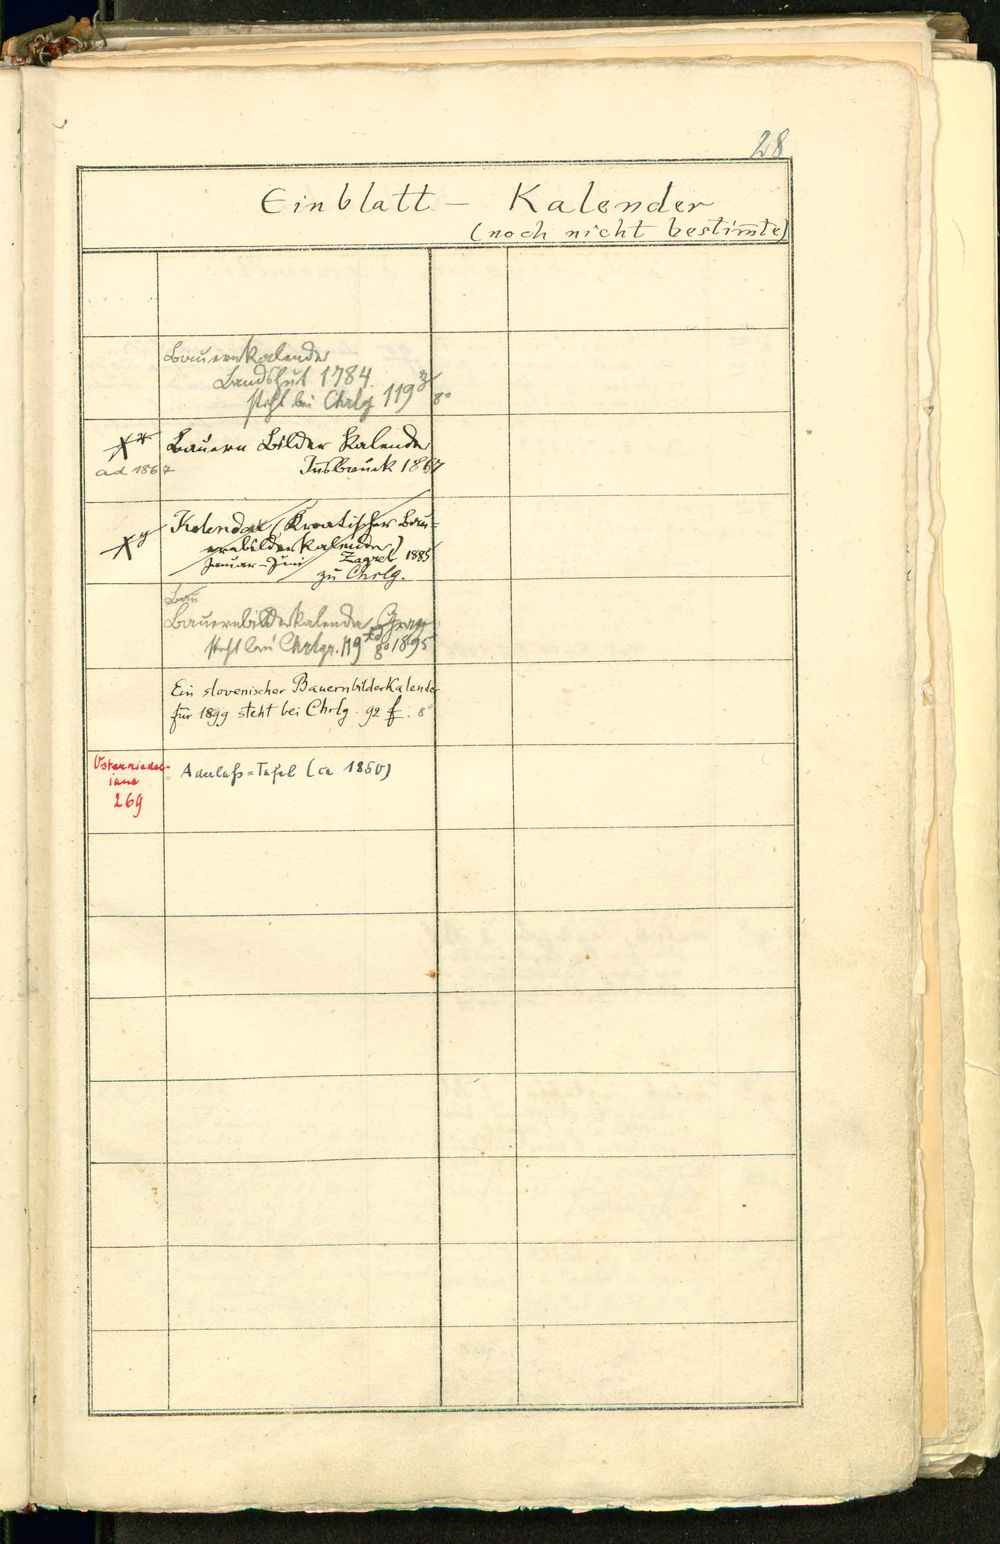 28
Einblatt - Kalender
(noch nicht bestim̄te)
Bauernkalender
Landshut 1784.
steht bei Chrlg 119
8°
Bauern Bilder Kalender
ad 1867
Innsbruck 1867
Kalendar (Kroatischer Bau-
ernbilderkalender)
Januar-Juni Zagreb 1885
zu Chrlg.
Bau
Bauernbilderkalender Graz
steht bei Chrlgr. 119 8° 1895
Ein slovenischer Bauernbilderkalender
für 1899 steht bei Chrlg. 92 f. 8°
Osterriederiana
269
Aderlaß=Tafel (ca 1850)